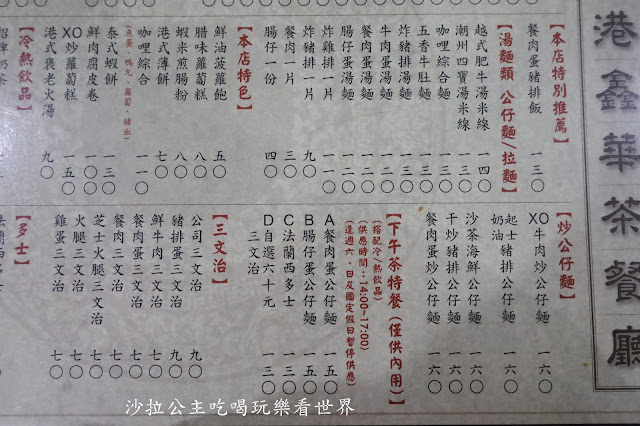 港鑫華茶餐廳
【本店特別推薦】
餐肉蛋豬排飯 一三〇
【湯麵類 公仔麵/拉麵】
越式肥牛湯米線 一四〇
潮州四寶湯米線 一三〇
咖哩綜合麵 一三〇
五香牛肚麵 一三〇
炸豬排湯麵 一三〇
牛肉蛋湯麵 一二〇
餐肉蛋湯麵 一二〇
腸仔蛋湯麵 一二〇
炸雞排一片 一一〇
炸豬排一片 九〇
餐肉一片 三〇
腸仔一份 四〇
【本店特色】
鮮油菠蘿飽 五〇
腊味蘿蔔糕 八〇
蝦米煎腸粉 八〇
港式薄餅 七〇
咖哩綜合 一一〇
(魚蛋、鴨丸、蘿蔔、豬血)
泰式蝦餅 一三〇
鮮肉腐皮卷 一〇〇
XO炒蘿蔔糕 一五〇
港式褒老火湯 九〇
【冷熱飲品】
招牌奶茶
【炒公仔麵】
XO牛肉炒公仔麵 一六〇
起士豬排公仔麵 一六〇
奶油
沙茶海鮮公仔麵 一六〇
干炒豬排公仔麵 一六〇
餐肉蛋炒公仔麵 一六〇
【下午茶特餐(僅供內用)】
搭配冷、熱飲品)
(供應時間:14:00~17:00)
逢週六、日及國定假日暫停供應)
A餐肉蛋公仔麵 一五〇
B腸仔蛋公仔麵 一五〇
C法蘭西多士 一三〇
D自選六十元 一三〇
三文治
【三文治】
公司三文治 九〇
豬排蛋三文治 九〇
鮮牛肉三文治 七〇
餐肉蛋三文治 七〇
餐肉三文治 七〇
芝士火腿三文治 七〇
火腿三文治 七〇
雞蛋三文治 七〇
【多士】
沙拉公主吃喝玩樂看世界